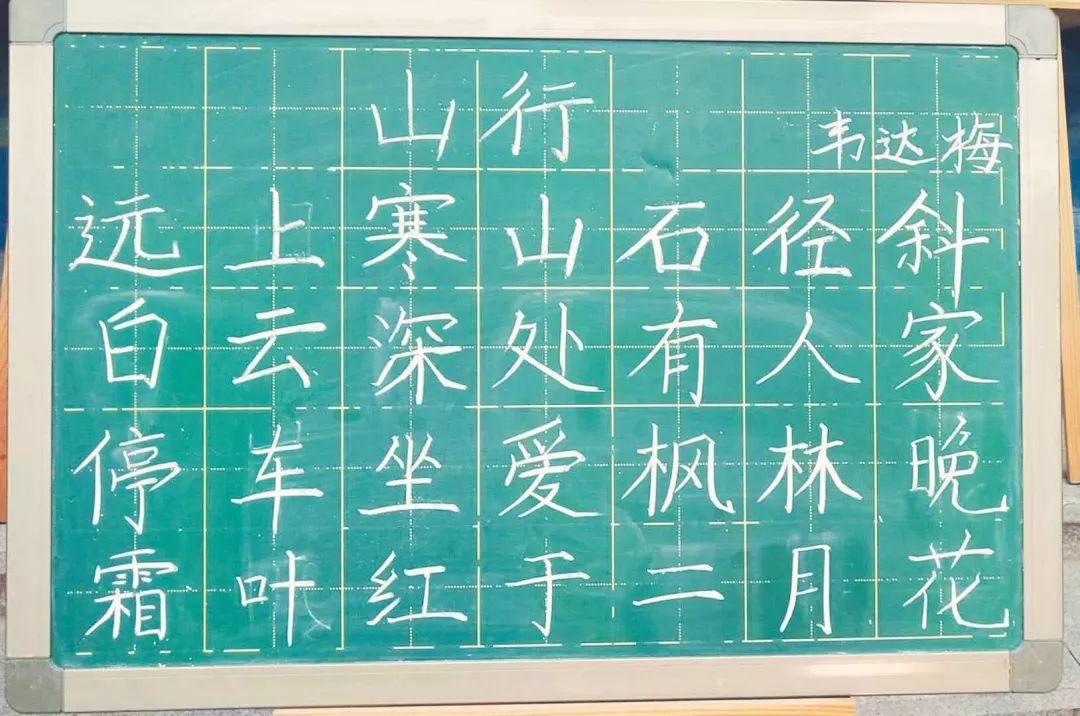 山行
韦达梅
远上寒山石径斜
白云深处有人家
停车坐爱枫林晚
霜叶红于二月花